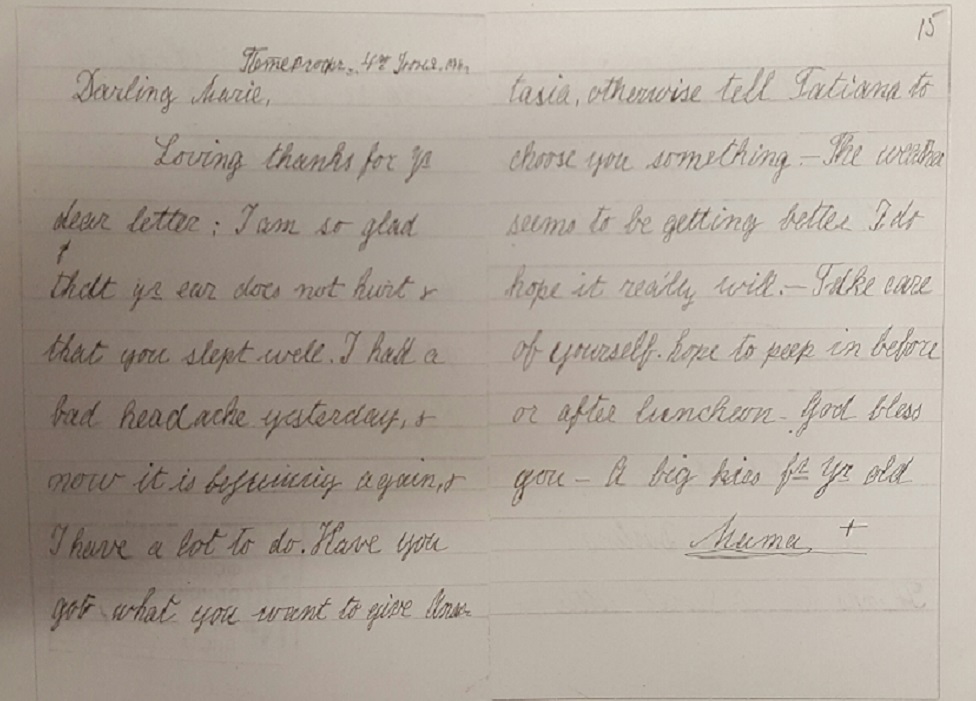 15
Петергофъ. 4го Іюня.
Darling Marie,
Loving thanks for yr
dear letter; I am so glad
that yr ear does not hurt &
that you slept well. I had a
bad headache yesterday, &
now it is beginning again, &
I have a lot to do. Have you
got what you want to give Anas-
tasia, otherwise tell Tatiana to
choose you something - The weather
seems to be getting better I do
hope it really will. - Take care
of yourself. hope to peep in before
or after luncheon - God bless
you - A big kiss fr yr old
Mama +